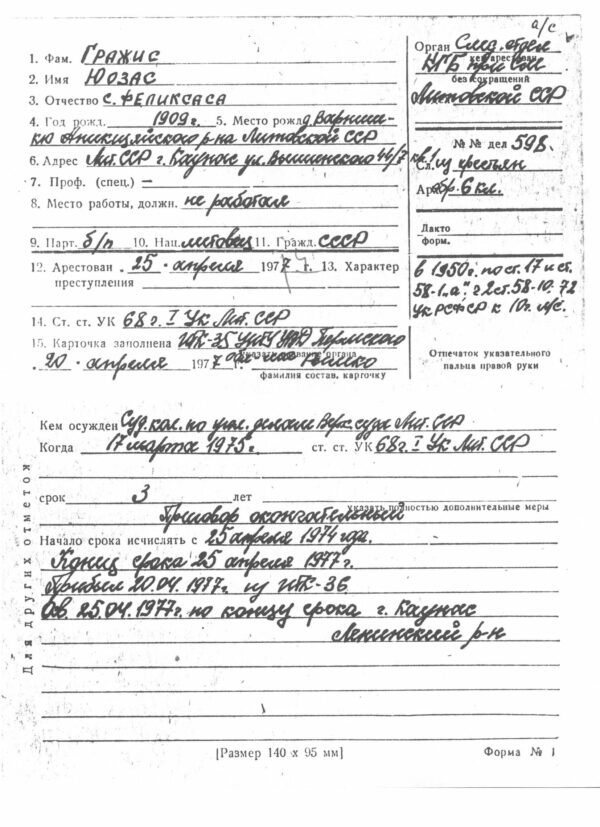 а/с
1. Фам. ГРАЖИС
2. Имя ЮОЗАС
3. Отчество С. ФЕЛИКСАСА
4. Год рожд. 1909г. 5. Место рожд. д. Варниш-
кю Аникщяйского р-на Литовской ССР
6. Адрес Лит. ССР г. Каунас ул. Вышинского 44/7 кв. 1
7. Проф. (спец.) —
8. Место работы, должн. не работал
9. Парт. б/п 10. Нац. литовец 11. Гражд. СССР
12. Арестован 25 апреля 1974 г. 13. Характер
преступления
14. Ст. ст. УК 68 г. I УК Лит. ССР
15. Карточка заполнена ИТК-35 УИТУ УВД Пермского
указать название органа
20 апреля 1977
фамилия состав. карточку
Орган След. отдел
кем арестован
КГБ при СМ
без сокращений
Литовской ССР
№ № дел 598.
из крестьян
обр. 6 кл.
Дакто
форм.
в 1950г. по ст. 17 и ст.
58-1 „а" г 2 ст. 58-10. 72
УК РСФСР к 10г. л/с.
Отпечаток указательного
пальца правой руки
Для других отметок
Кем осужден Суд. кол. по угол. делам Верх. суда Лит. ССР
Когда 17 марта 1975г. ст. ст. УК 68 г. I УК Лит. ССР
срок 3 лет
указать полностью дополнительные меры
Приговор окончательный
Начало срока исчислять с 25 апреля 1974 года.
Конец срока 25 апреля 1977г.
Прибыл 20.04.1977г. из ИТК-36
Осв. 25.04.1977г. по концу срока г. Каунас
Ленинский р-н
[Размер 140 х 95 мм] Форма № 1